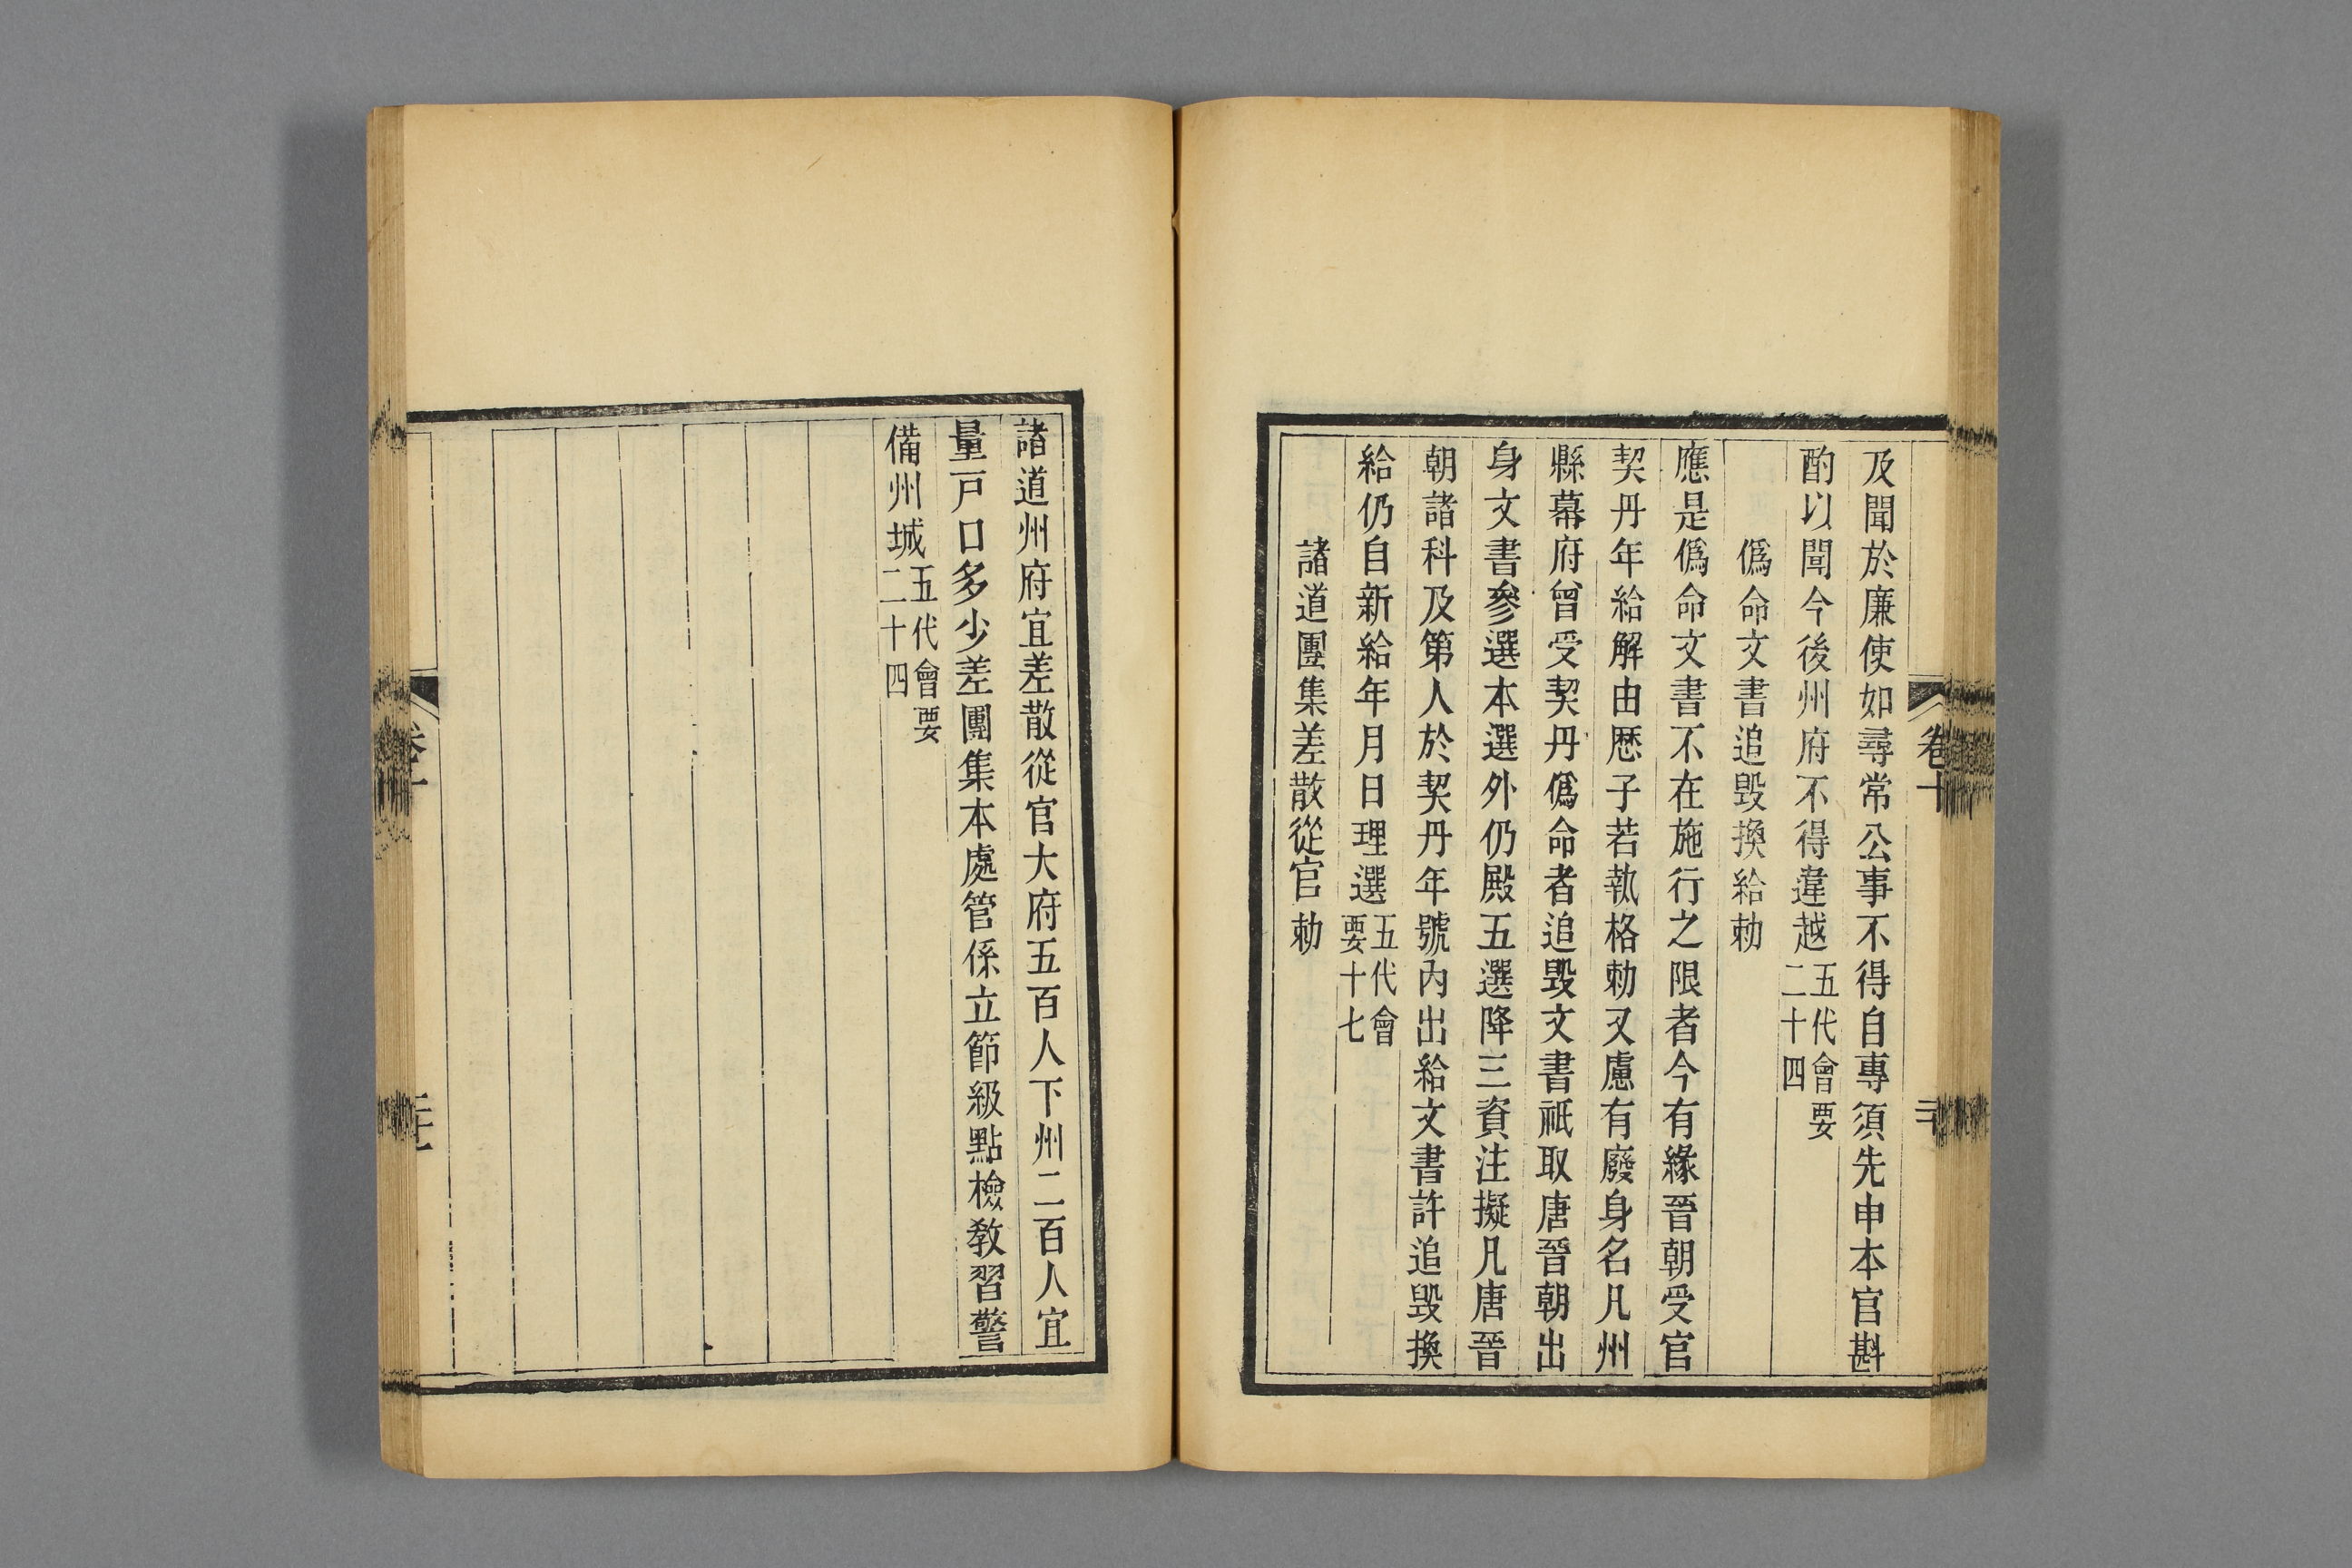 及聞於廉使如尋常公事不得自專須先申本官斟
酌以聞今後州府不得違越五代會要二十四
僞命文書追毀換給勅
應是僞命文書不在施行之限者今有緣晉朝受官
契丹年給解由歷子若執格勅又慮有廢身名凡州
縣幕府曾受契丹僞命者追毀文書祇取唐晉朝出
身文書參選本選外仍殿五選降三資注擬凡唐晉
朝諸科及第人於契丹年號內出給文書許追毀換
給仍自新給年月日理選五代會要十七
諸道團集差散從官勅
諸道州府宜差散從官大府五百人下州二百人宜
量戸口多少差團集本處管係立節級點檢敎習警
備州城五代會要二十四
卷十